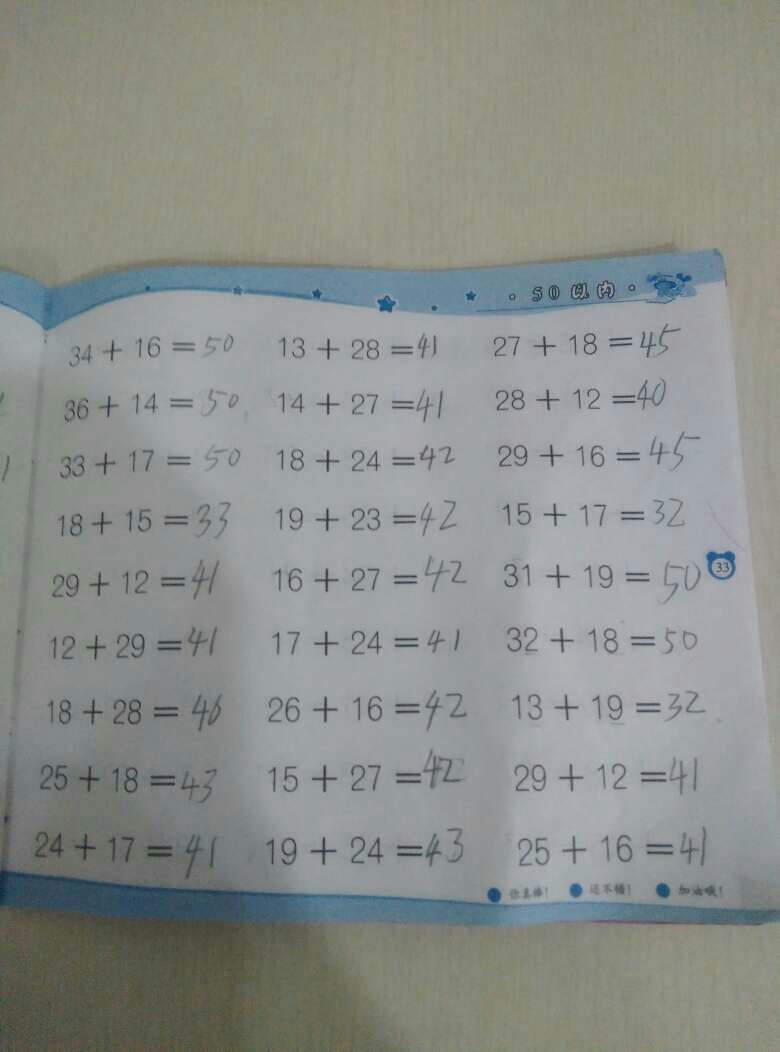 50以内
34 + 16 = 50 13 + 28 = 41 27 + 18 = 45
36 + 14 = 50 14 + 27 = 41 28 + 12 = 40
33 + 17 = 50 18 + 24 = 42 29 + 16 = 45
18 + 15 = 33 19 + 23 = 42 15 + 17 = 32
29 + 12 = 41 16 + 27 = 42 31 + 19 = 50
33
12 + 29 = 41 17 + 24 = 41 32 + 18 = 50
18 + 28 = 46 26 + 16 = 42 13 + 19 = 32
25 + 18 = 43 15 + 27 = 42 29 + 12 = 41
24 + 17 = 41 19 + 24 = 43 25 + 16 = 41
你真棒! 还不错! 加油哦!